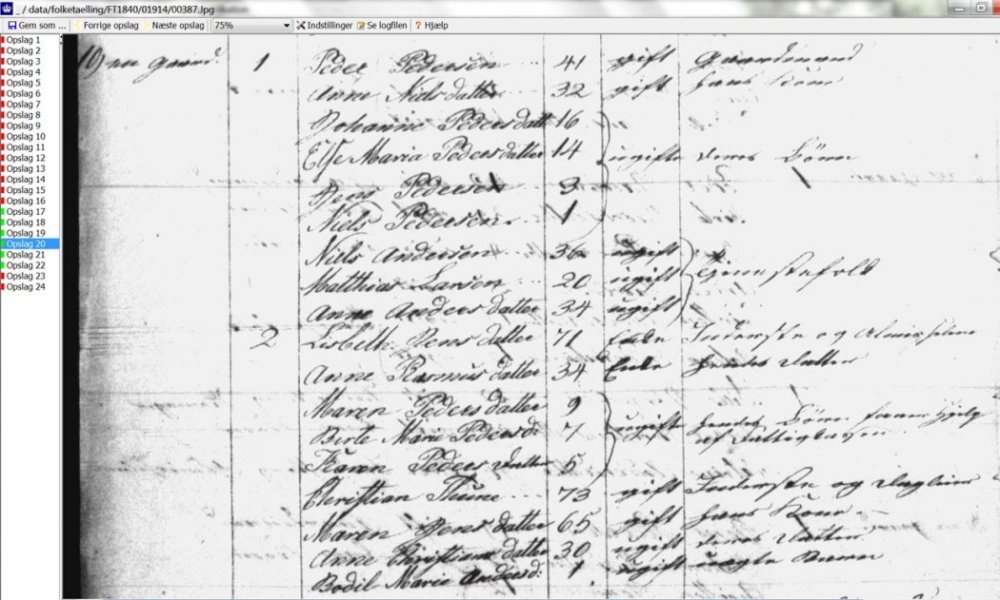 _ / data/folketaelling/FT1840/01914/00387.Jpg
Gem som ... Forrige opslag Næste opslag 75% Indstillinger Se logfilen ? Hjælp
Opslag 1
Opslag 2
Opslag 3
Opslag 4
Opslag 5
Opslag 6
Opslag 7
Opslag 8
Opslag 9
Opslag 10
Opslag 11
Opslag 12
Opslag 13
Opslag 14
Opslag 15
Opslag 16
Opslag 17
Opslag 18
Opslag 19
Opslag 20
Opslag 21
Opslag 22
Opslag 23
Opslag 24
en gaard. 1 Peder Pedersen 41 gift Gaardmand
Anne Niels datter 32 gift hans Kone
Johanne Peders datt 16
Else Maria Peders datter 14 ugifte deres Børn
Jens Pedersen 3
Niels Pedersen 1
Niels Andersen 36 ugift
Matthias Larsen 20 ugift Tjenestefolk
Anne Anders datter 34 ugift
2 Lisbeth Jens datter 71 Enke Inderste og Almisselem
Anne Rasmus datter 34 Enke hendes Datter
Maren Peders datter 9
Birte Marie Peders d: 7 ugift hendes Børn
af Fattigkassen
Karen Peders datter 5
Christian 73 gift Inderste og Daglejer
Maren Jens datter 65 gift hans Kone
Anne Christians datter 30 ugift deres Datter
Bodil Marie Anders d: 1 ugift uægte Barn